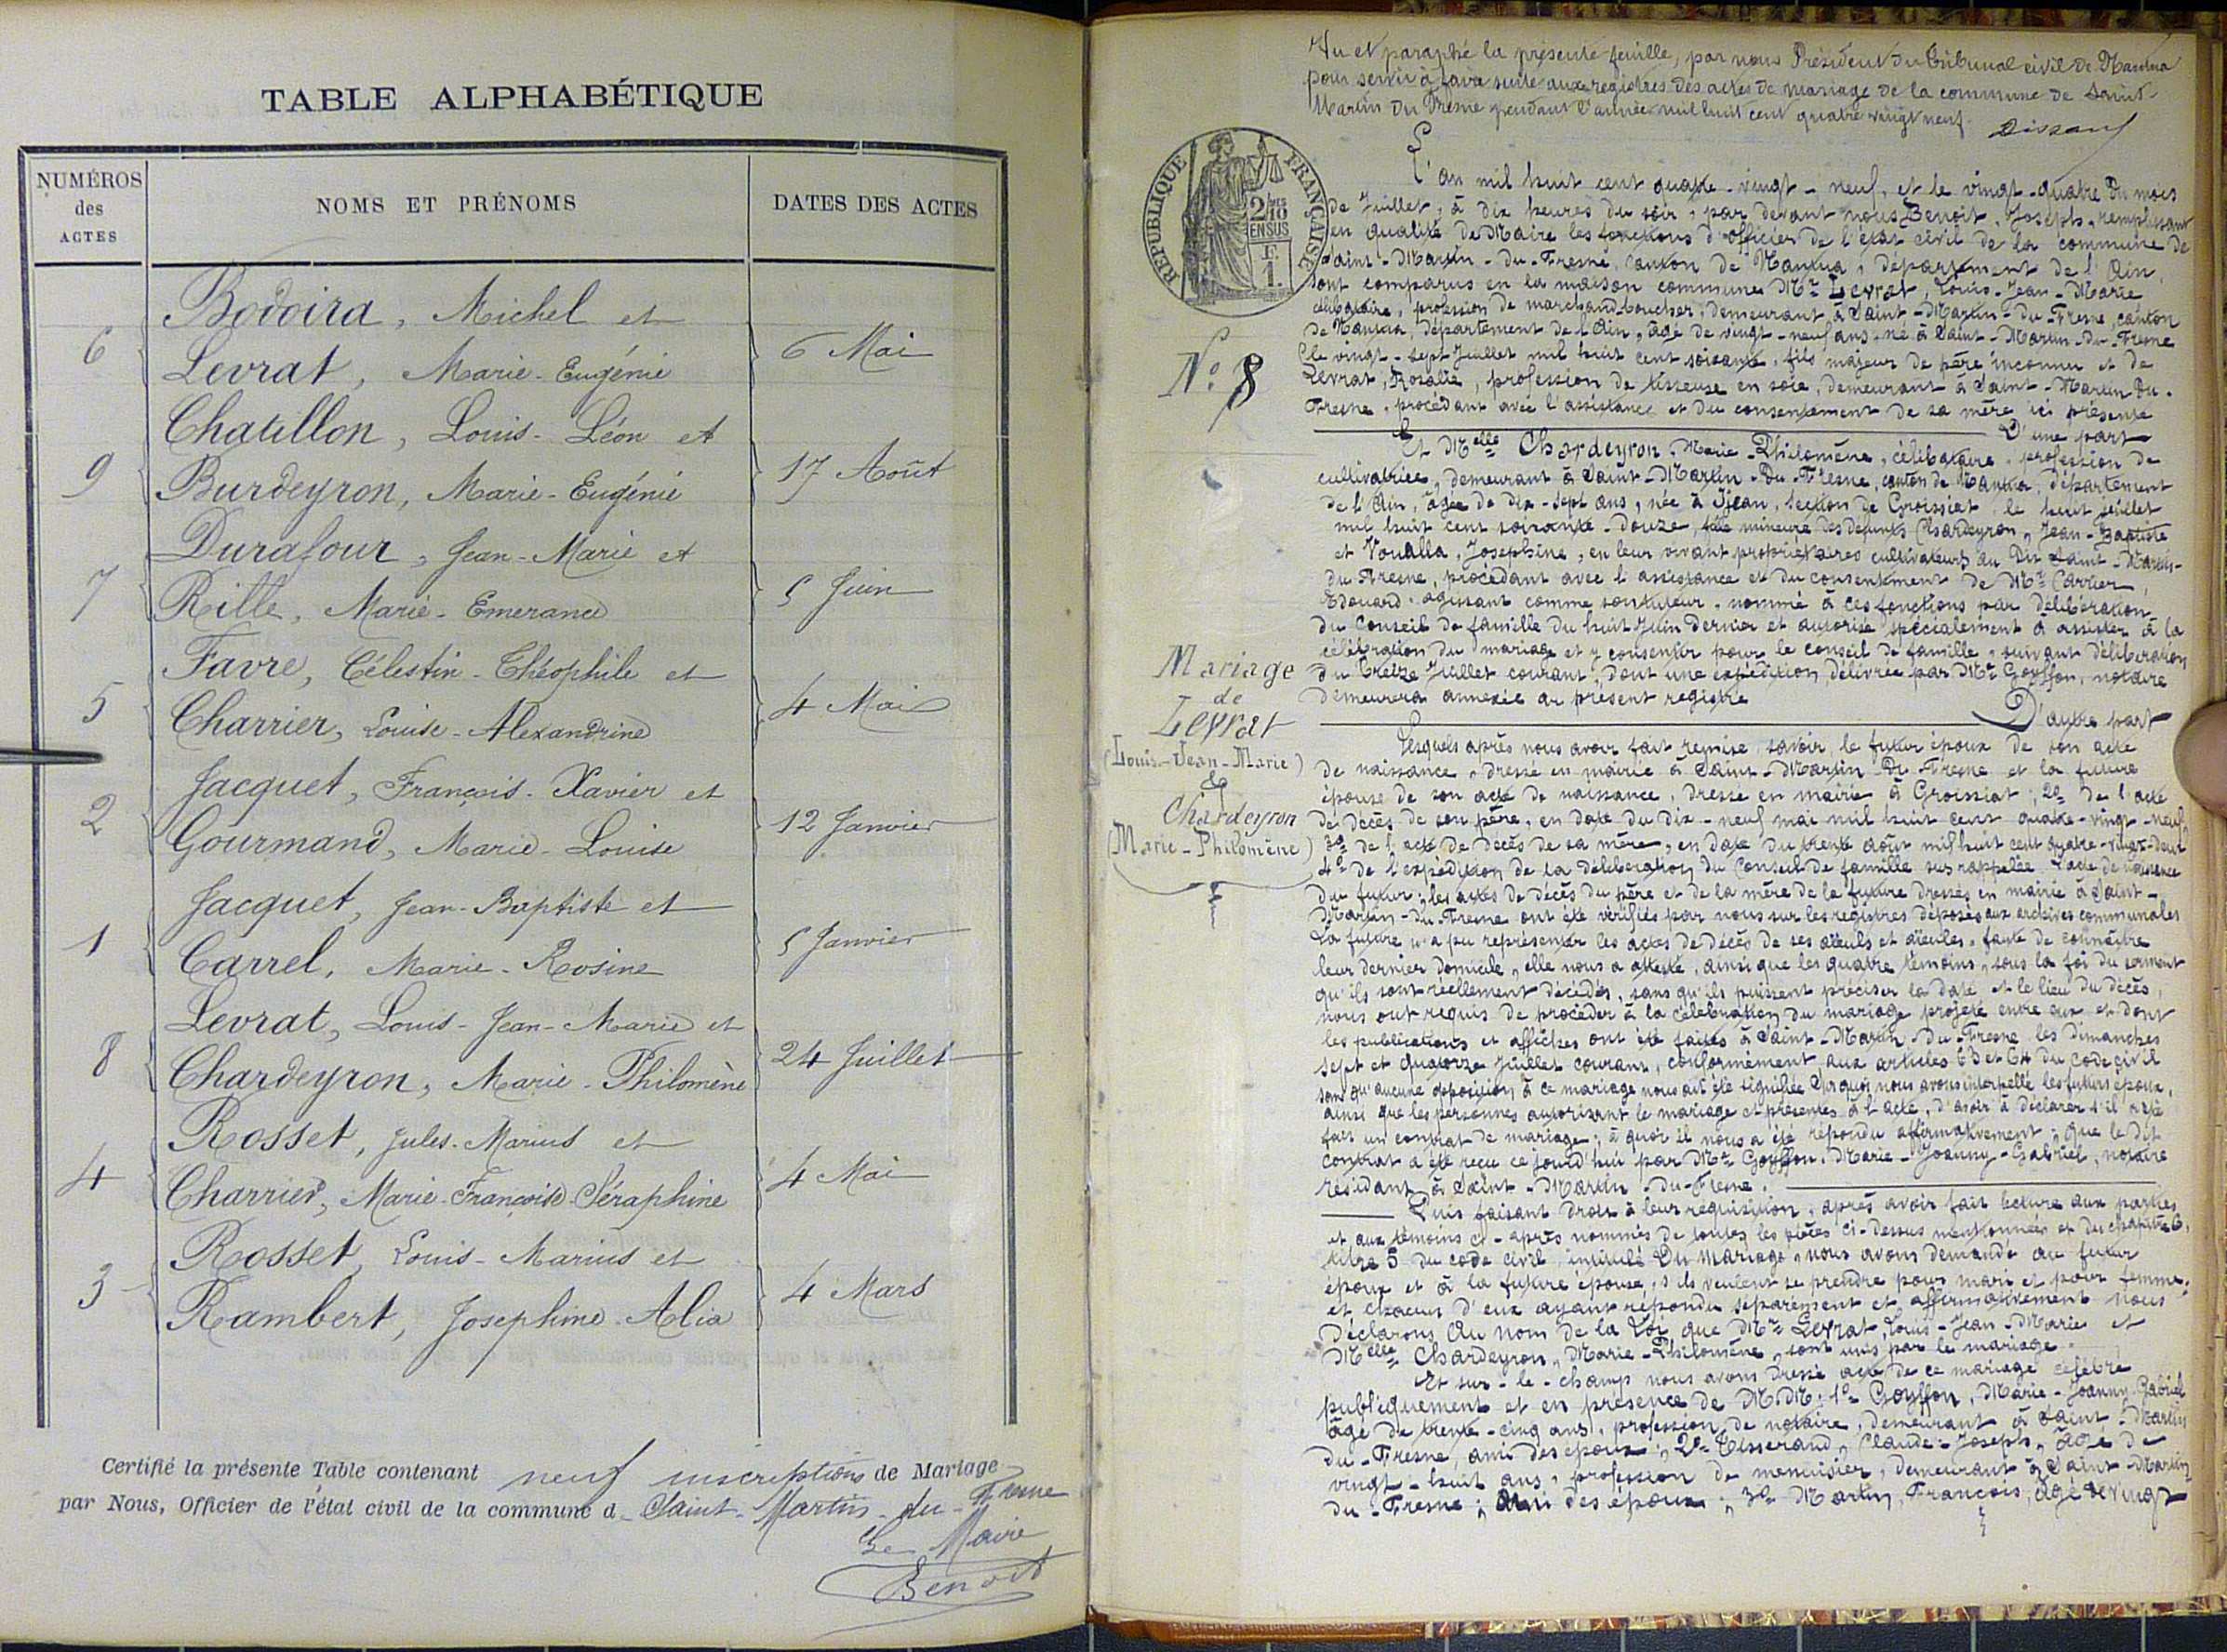 TABLE ALPHABÉTIQUE
NUMÉROS des ACTES
NOMS ET PRÉNOMS
DATES DES ACTES
Bodoira, Michel et
6 6 Mai
Levrat, Marie-Eugénie
Chatillon, Louis-Léon et
9 17 Août
Burdeyron, Marie-Eugénie
Durafour, Jean-Marie et
7 5 Juin
Ritte, Marie-Emerance
Favre, Célestin-Théophile et
5 4 Mai
Charrier, Louise-Alexandrine
Jacquet, François-Xavier et
2 12 Janvier
Gourmand, Marie-Louise
Jacquet, Jean-Baptiste et
1 5 Janvier
Carrel, Marie-Rosine
Levrat, Louis-Jean-Marie et
8 24 Juillet
Chardeyron, Marie-Philomène
Rosset, Jules-Marius et
4 4 Mai
Charrier, Marie-Françoise-Séraphine
Rosset, Louis-Marius et
3 4 Mars
Rambert, Josephine-Alia
Certifié la présente Table contenant neuf inscriptions de Mariage
par Nous, Officier de l'état civil de la commune d Saint-Martin-du-Fresne
Le Maire
Benoit
Vu et paraphé la présente feuille, par nous Président du Tribunal civil de Nantua
pour servir à faire suite aux registres des actes de mariage de la commune de Saint-
Martin du Fresne pendant l'année mil huit cent quatre vingt neuf.
RÉPUBLIQUE FRANÇAISE
2/10 EN SUS
F. 1.
L'an mil huit cent quatre-vingt-neuf, et le vingt-quatre du mois
de Juillet, à dix heures du soir, par devant nous Benoit, Joseph, remplissant
en qualité de Maire les fonctions d'officier de l'état civil de la commune de
Saint-Martin-du-Fresne, canton de Nantua, département de l'Ain,
sont comparus en la maison commune Mr Levrat, Louis-Jean-Marie
célibataire, profession de marchand boucher, demeurant à Saint-Martin-du-Fresne, canton
de Nantua, département de l'Ain, âgé de vingt-neuf ans, né à Saint-Martin-du-Fresne
le vingt-sept Juillet mil huit cent soixante, fils majeur de père inconnu et de
Levrat, Rosalie, profession de tisseuse en soie, demeurant à Saint-Martin du-
Fresne, procédant avec l'assistance et du consentement de sa mère ici présente
D'une part
No. 8
Et Melle Chardeyron, Marie-Philomène, célibataire, profession de
cultivatrice, demeurant à Saint-Martin-du-Fresne, canton de Nantua, département
de l'Ain, âgée de dix-sept ans, née à Ijean, section de Groissiat, le huit juillet
mil huit cent soixante-douze, fille mineure des défunts Chardeyron, Jean-Baptiste
et Voualla, Josephine, en leur vivant propriétaires cultivateurs au dit Saint-Martin-
du Fresne, procédant avec l'assistance et du consentement de Mr Carrier,
Edouard, agissant comme son tuteur, nommé à ces fonctions par délibération
du Conseil de famille du huit Juin dernier et autorisé spécialement à assister à la
célébration du mariage et y consentir pour le conseil de famille, suivant délibération
du treize Juillet courant, dont une expédition, délivrée par Me Goyffon, notaire
demeurera annexée au présent registre
D'autre part
Mariage
de
Levrat
(Louis-Jean-Marie)
&
Chardeyron
(Marie-Philomène)
Lesquels après nous avoir fait remise, savoir, le futur époux de son acte
de naissance, dressé en mairie à Saint-Martin-du-Fresne et la future
épouse de son acte de naissance, dressé en mairie à Groissiat; 2o de l'acte
de décès de son père, en date du dix-neuf mai mil huit cent quatre-vingt-neuf,
3o de l'acte de décès de sa mère, en date du trente août mil huit cent quatre-vingt-deux
4o de l'expédition de la délibération du Conseil de famille sus rappelée. L'acte de naissance
du futur, les actes de décès du père et de la mère de la future dressés en mairie à Saint-
Martin-du-Fresne ont été vérifiés par nous sur les registres déposés aux archives communales
La future n'a pu représenter les actes de décès de ses aïeuls et aïeules, faute de connaître
leur dernier domicile, elle nous a attesté, ainsi que les quatre témoins, sous la foi du serment
qu'ils sont réellement décédés, sans qu'ils puissent préciser la date et le lieu du décès,
nous ont requis de procéder à la célébration du mariage projeté entre eux et dont
les publications et affiches ont été faites à Saint-Martin-du-Fresne les dimanches
sept et quatorze Juillet courant, conformément aux articles 63 et 64 du code civil
sans qu'aucune opposition à ce mariage nous ait été signifiée. Sur quoi nous avons interpellé les futurs époux,
ainsi que les personnes autorisant le mariage et présentes à l'acte, d'avoir à déclarer s'il a été
fait un contrat de mariage; à quoi il nous a été répondu affirmativement; que le dit
contrat a été reçu ce jourd'hui par Me Goyffon, Marie-Joanny-Gabriel, notaire
résidant à Saint-Martin-du-Fresne.
Puis faisant droit à leur réquisition, après avoir fait lecture aux parties
et aux témoins ci-après nommés de toutes les pièces ci-dessus mentionnées et du chapitre 6,
titre 5 du code civil, intitulé Du mariage, nous avons demandé au futur
époux et à la future épouse, s'ils veulent se prendre pour mari et pour femme,
et chacun d'eux ayant répondu séparément et affirmativement nous
déclarons Au nom de la Loi, que Mr Levrat, Louis-Jean-Marie et
Melle Chardeyron, Marie-Philomène, sont unis par le mariage.
Et sur-le-champ nous avons dressé acte de ce mariage célébré
publiquement et en présence de MM. 1o Goyffon, Marie-Joanny-Gabriel
âgé de trente-cinq ans, profession de notaire, demeurant à Saint-Martin
du-Fresne, ami des époux; 2o Tisserand, Claude-Joseph, âgé de
vingt-huit ans, profession de menuisier, demeurant à Saint-Martin
du-Fresne, ami des époux; 3o Martin, François, âgé de vingt